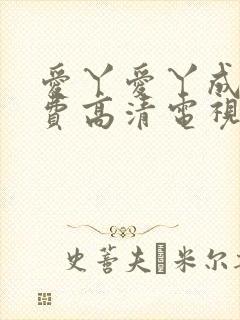 愛丫愛丫成
費高清電視
史蒂夫·米尔